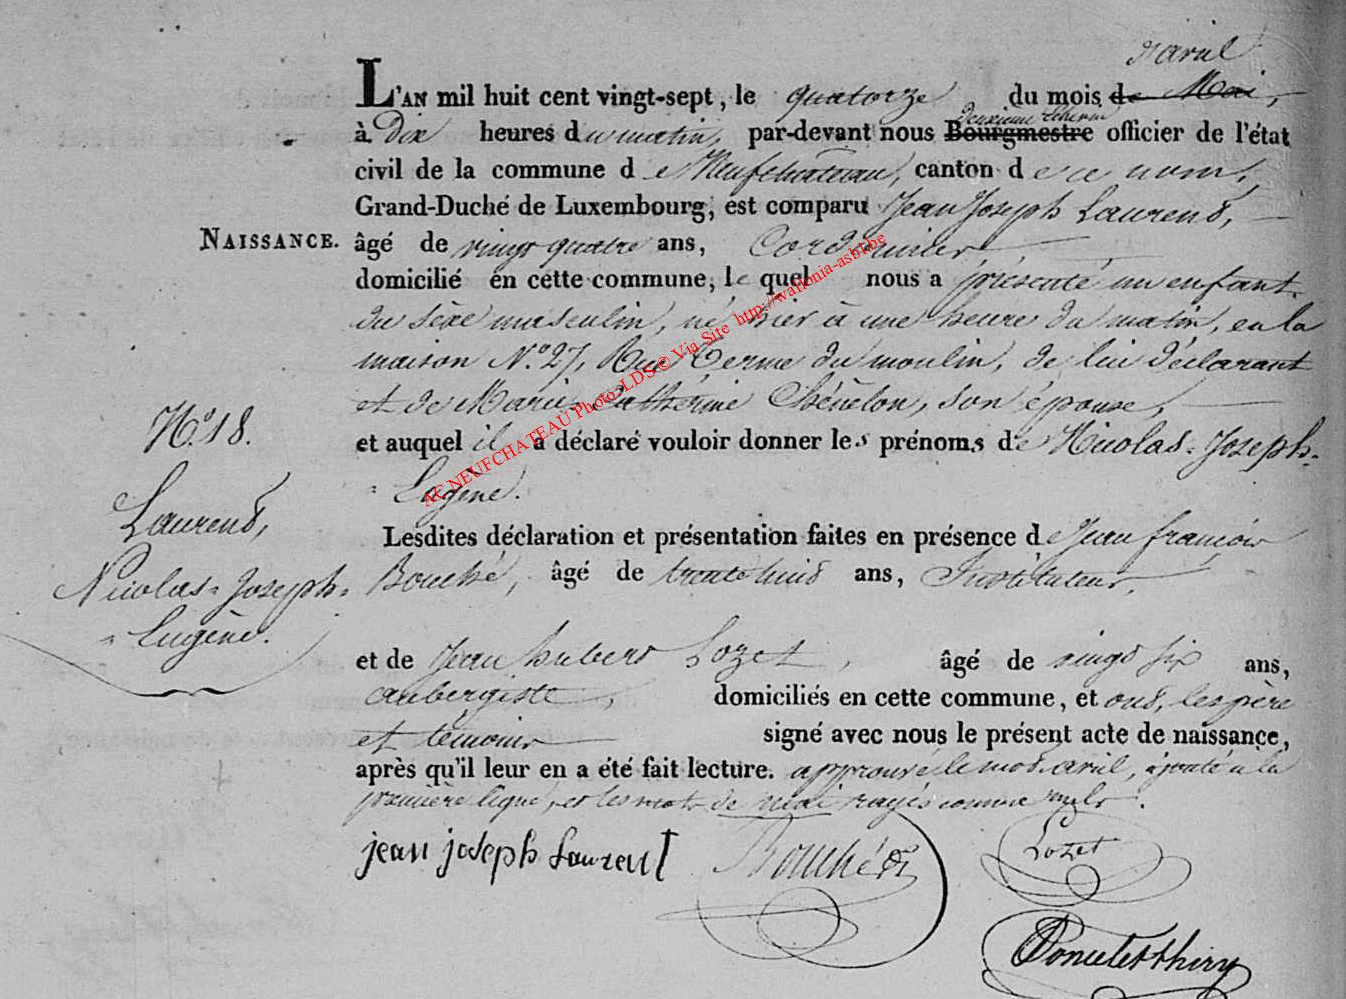 d'avril
L'AN mil huit cent vingt-sept, le quatorze du mois de Mai,
deuxième échevin
à Dix heures du matin, par-devant nous Bourgmestre officier de l'état
civil de la commune de Neufchateau, canton de ce nom,
Grand-Duché de Luxembourg, est comparu Jean Joseph Laurend,
NAISSANCE.
âgé de vingt quatre ans, Cordonnier,
domicilié en cette commune, le quel nous a présenté un enfant
du sèxe masculin, né hier à une heure du matin, en la
maison N.° 27, Rue Terme du moulin, de lui déclarant
et de Marie Catherine Chénelon, son épouse,
et auquel il a déclaré vouloir donner les prénoms de Nicolas-Joseph-
-Eugène.
N.° 18.
Laurend,
Nicolas-Joseph-
-Eugène.
Lesdites déclaration et présentation faites en présence de Jean françois
Bouché, âgé de trente huid ans, Instituteur,
et de Jean hubert Lozet, âgé de vingt six ans,
aubergiste, domiciliés en cette commune, et ond, les père
et témoins signé avec nous le présent acte de naissance,
après qu'il leur en a été fait lecture. approuvé le mot avril, ajouté à la
première ligne, et les mots de mai rayés comme nuls.
jean joseph Laurent
Bouché
Lozet
Poncelet thiry
AC NEUFCHATEAU Photo LDS © Via Site http://wallonia-asbl.be